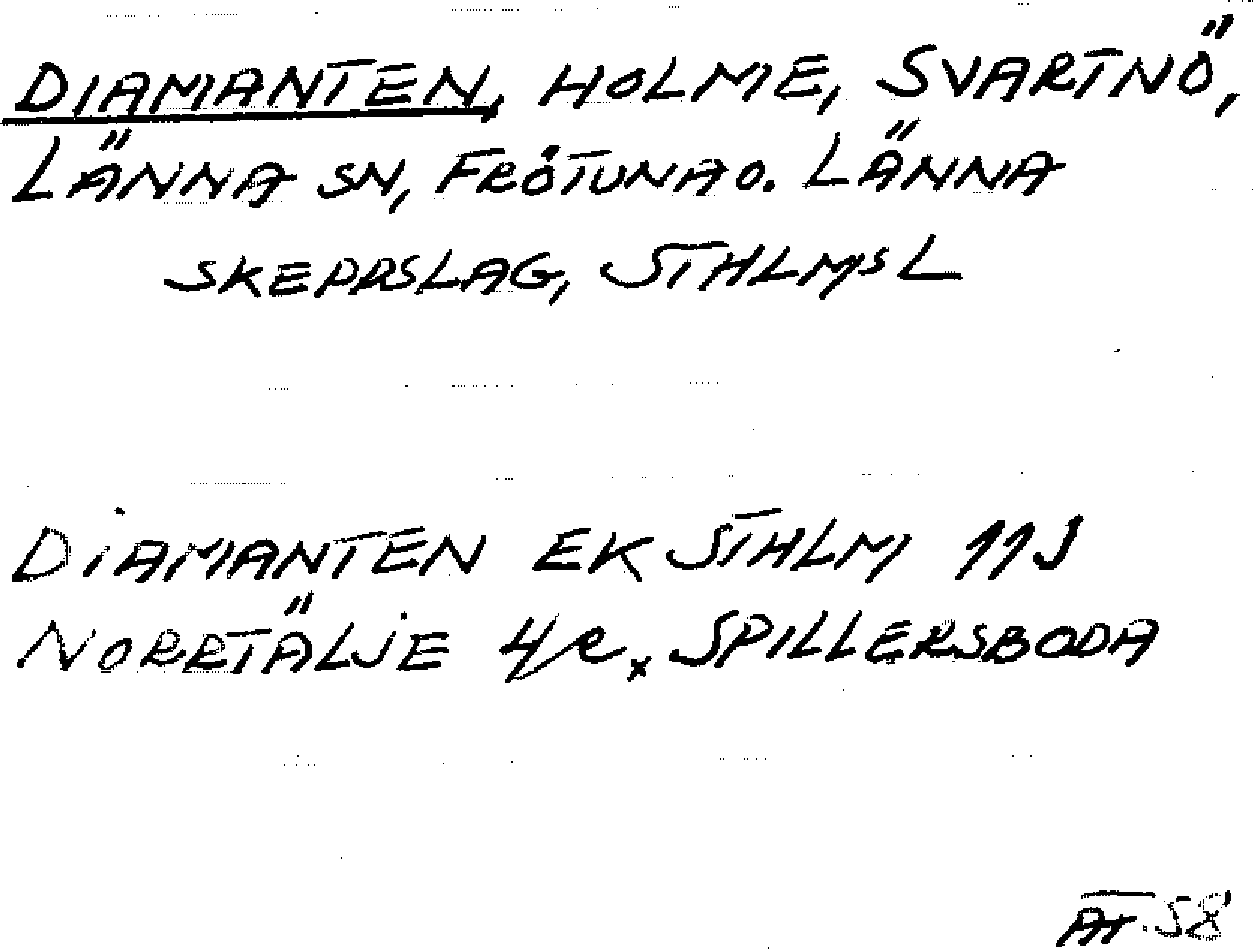 DIAMANTEN, HOLME, SVARTNÖ,
LÄNNA SN, FRÖTUNA O. LÄNNA
SKEPPSLAG, STHLMS L
DIAMANTEN EK STHLM 11J
NORRTÄLJE 4/e, SPILLERSBODA
AT.58